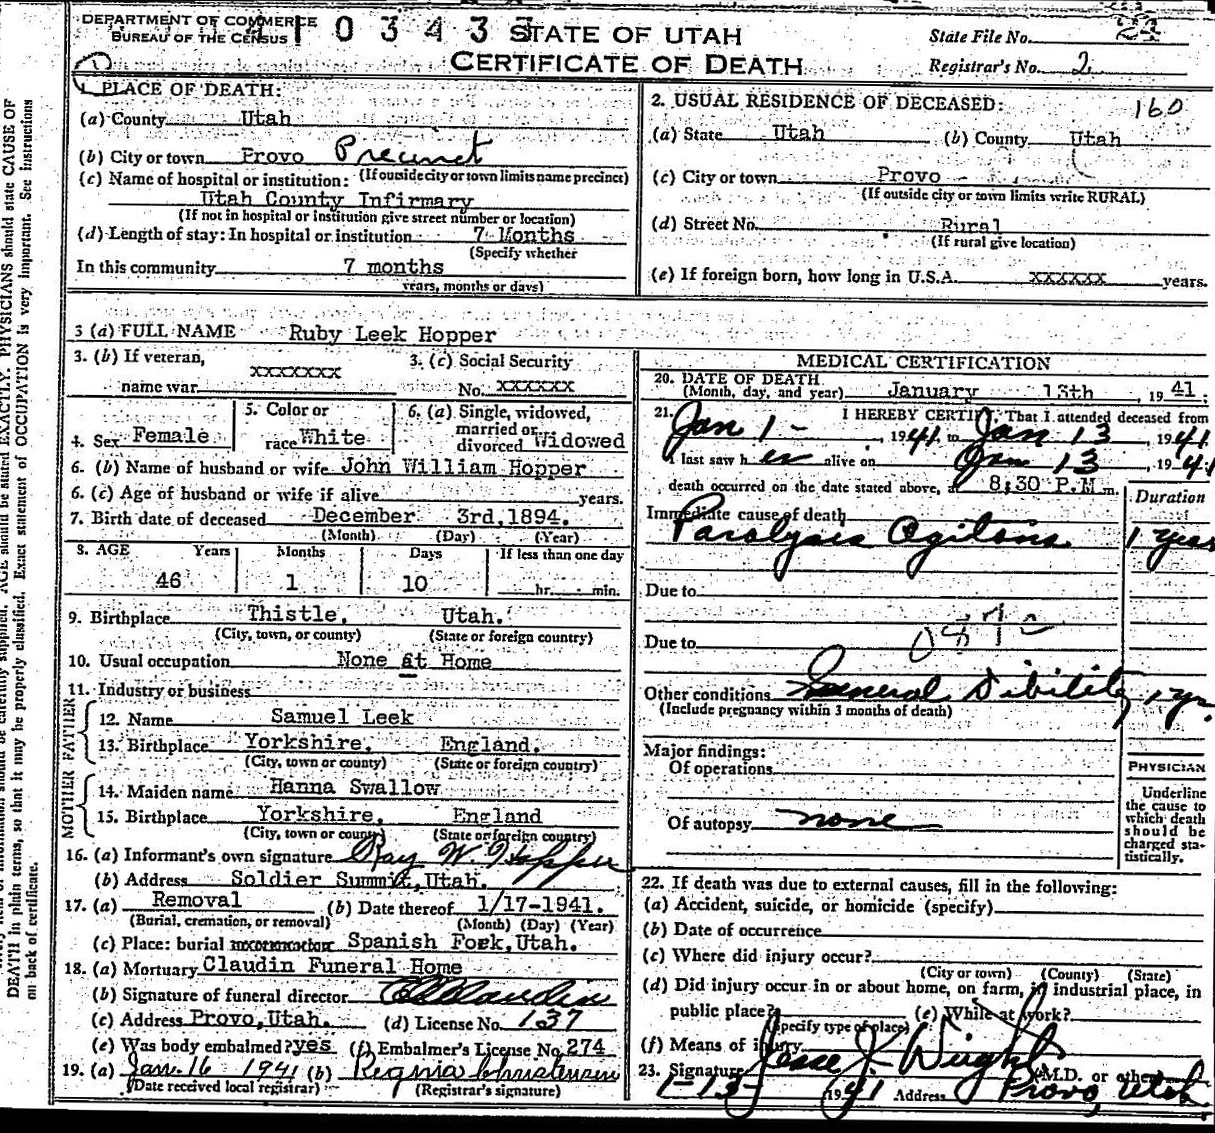 DEPARTMENT OF COMMERCE
BUREAU OF THE CENSUS
STATE OF UTAH
CERTIFICATE OF DEATH
State File No.
Registrar's No. 2
160
1. PLACE OF DEATH:
(a) County Utah
(b) City or town Provo Precinct
(If outside city or town limits name precinct)
(c) Name of hospital or institution:
Utah County Infirmary
(If not in hospital or institution give street number or location)
(d) Length of stay: In hospital or institution 7 Months
(Specify whether
In this community 7 months
years, months or days)
2. USUAL RESIDENCE OF DECEASED:
(a) State Utah (b) County Utah
(c) City or town Provo
(If outside city or town limits write RURAL)
(d) Street No. Rural
(If rural give location)
(e) If foreign born, how long in U.S.A. xxxxxx years.
3 (a) FULL NAME Ruby Leek Hopper
3. (b) If veteran, name war xxxxxxx
3. (c) Social Security No. xxxxxx
4. Sex Female
5. Color or race White
6. (a) Single, widowed, married or divorced Widowed
6. (b) Name of husband or wife John William Hopper
6. (c) Age of husband or wife if alive years.
7. Birth date of deceased December 3rd, 1894.
(Month) (Day) (Year)
8. AGE Years Months Days If less than one day
46 1 10 hr. min.
9. Birthplace Thistle, Utah.
(City, town, or county) (State or foreign country)
10. Usual occupation None at Home
11. Industry or business
FATHER
12. Name Samuel Leek
13. Birthplace Yorkshire, England.
(City, town or county) (State or foreign country)
MOTHER
14. Maiden name Hanna Swallow
15. Birthplace Yorkshire, England
(City, town or county) (State or foreign country)
16. (a) Informant's own signature Ray W. Hopper
(b) Address Soldier Summit, Utah.
17. (a) Removal (b) Date thereof 1/17-1941.
(Burial, cremation, or removal) (Month) (Day) (Year)
(c) Place: burial Spanish Fork, Utah.
18. (a) Mortuary Claudin Funeral Home
(b) Signature of funeral director
(c) Address Provo, Utah. (d) License No. 137
(e) Was body embalmed? yes (f) Embalmer's License No. 274
19. (a) Jan. 16 1941 (b) Christensen
(Date received local registrar) (Registrar's signature)
MEDICAL CERTIFICATION
20. DATE OF DEATH
(Month, day, and year) January 13th, 1941.
21. I HEREBY CERTIFY, That I attended deceased from
Jan 1 - , 1941 to Jan 13 , 1941
I last saw her alive on Jan 13 , 1941
death occurred on the date stated above, at 8:30 P.M m.
Duration
Immediate cause of death
Paralysis Agitans 1 year
Due to
Due to
Other conditions General Dibility 1 yr.
(Include pregnancy within 3 months of death)
Major findings:
Of operations
Of autopsy none
PHYSICIAN
Underline the cause to which death should be charged statistically.
22. If death was due to external causes, fill in the following:
(a) Accident, suicide, or homicide (specify)
(b) Date of occurrence
(c) Where did injury occur?
(City or town) (County) (State)
(d) Did injury occur in or about home, on farm, in industrial place, in
public place? (e) While at work?
(Specify type of place)
(f) Means of injury
23. Signature Jesse J. Weight (M.D. or other)
1-13- 1941 Address Provo, Utah